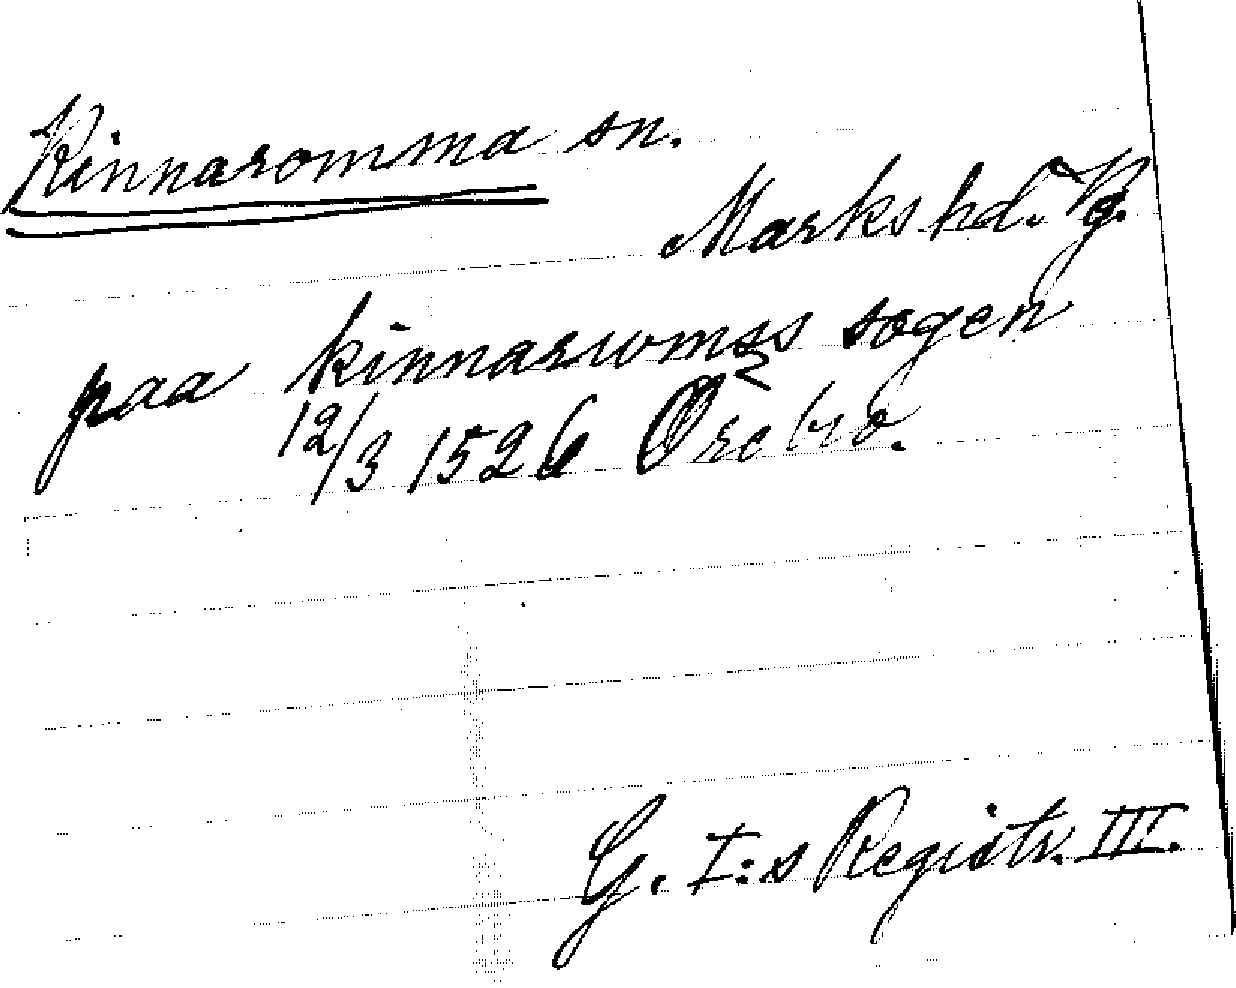 Kinnaromma sn.
Marks hd. Vg.
paa kinnarwmss sogen
12/3 1526 Örebro.
G. I:s Registr. III.